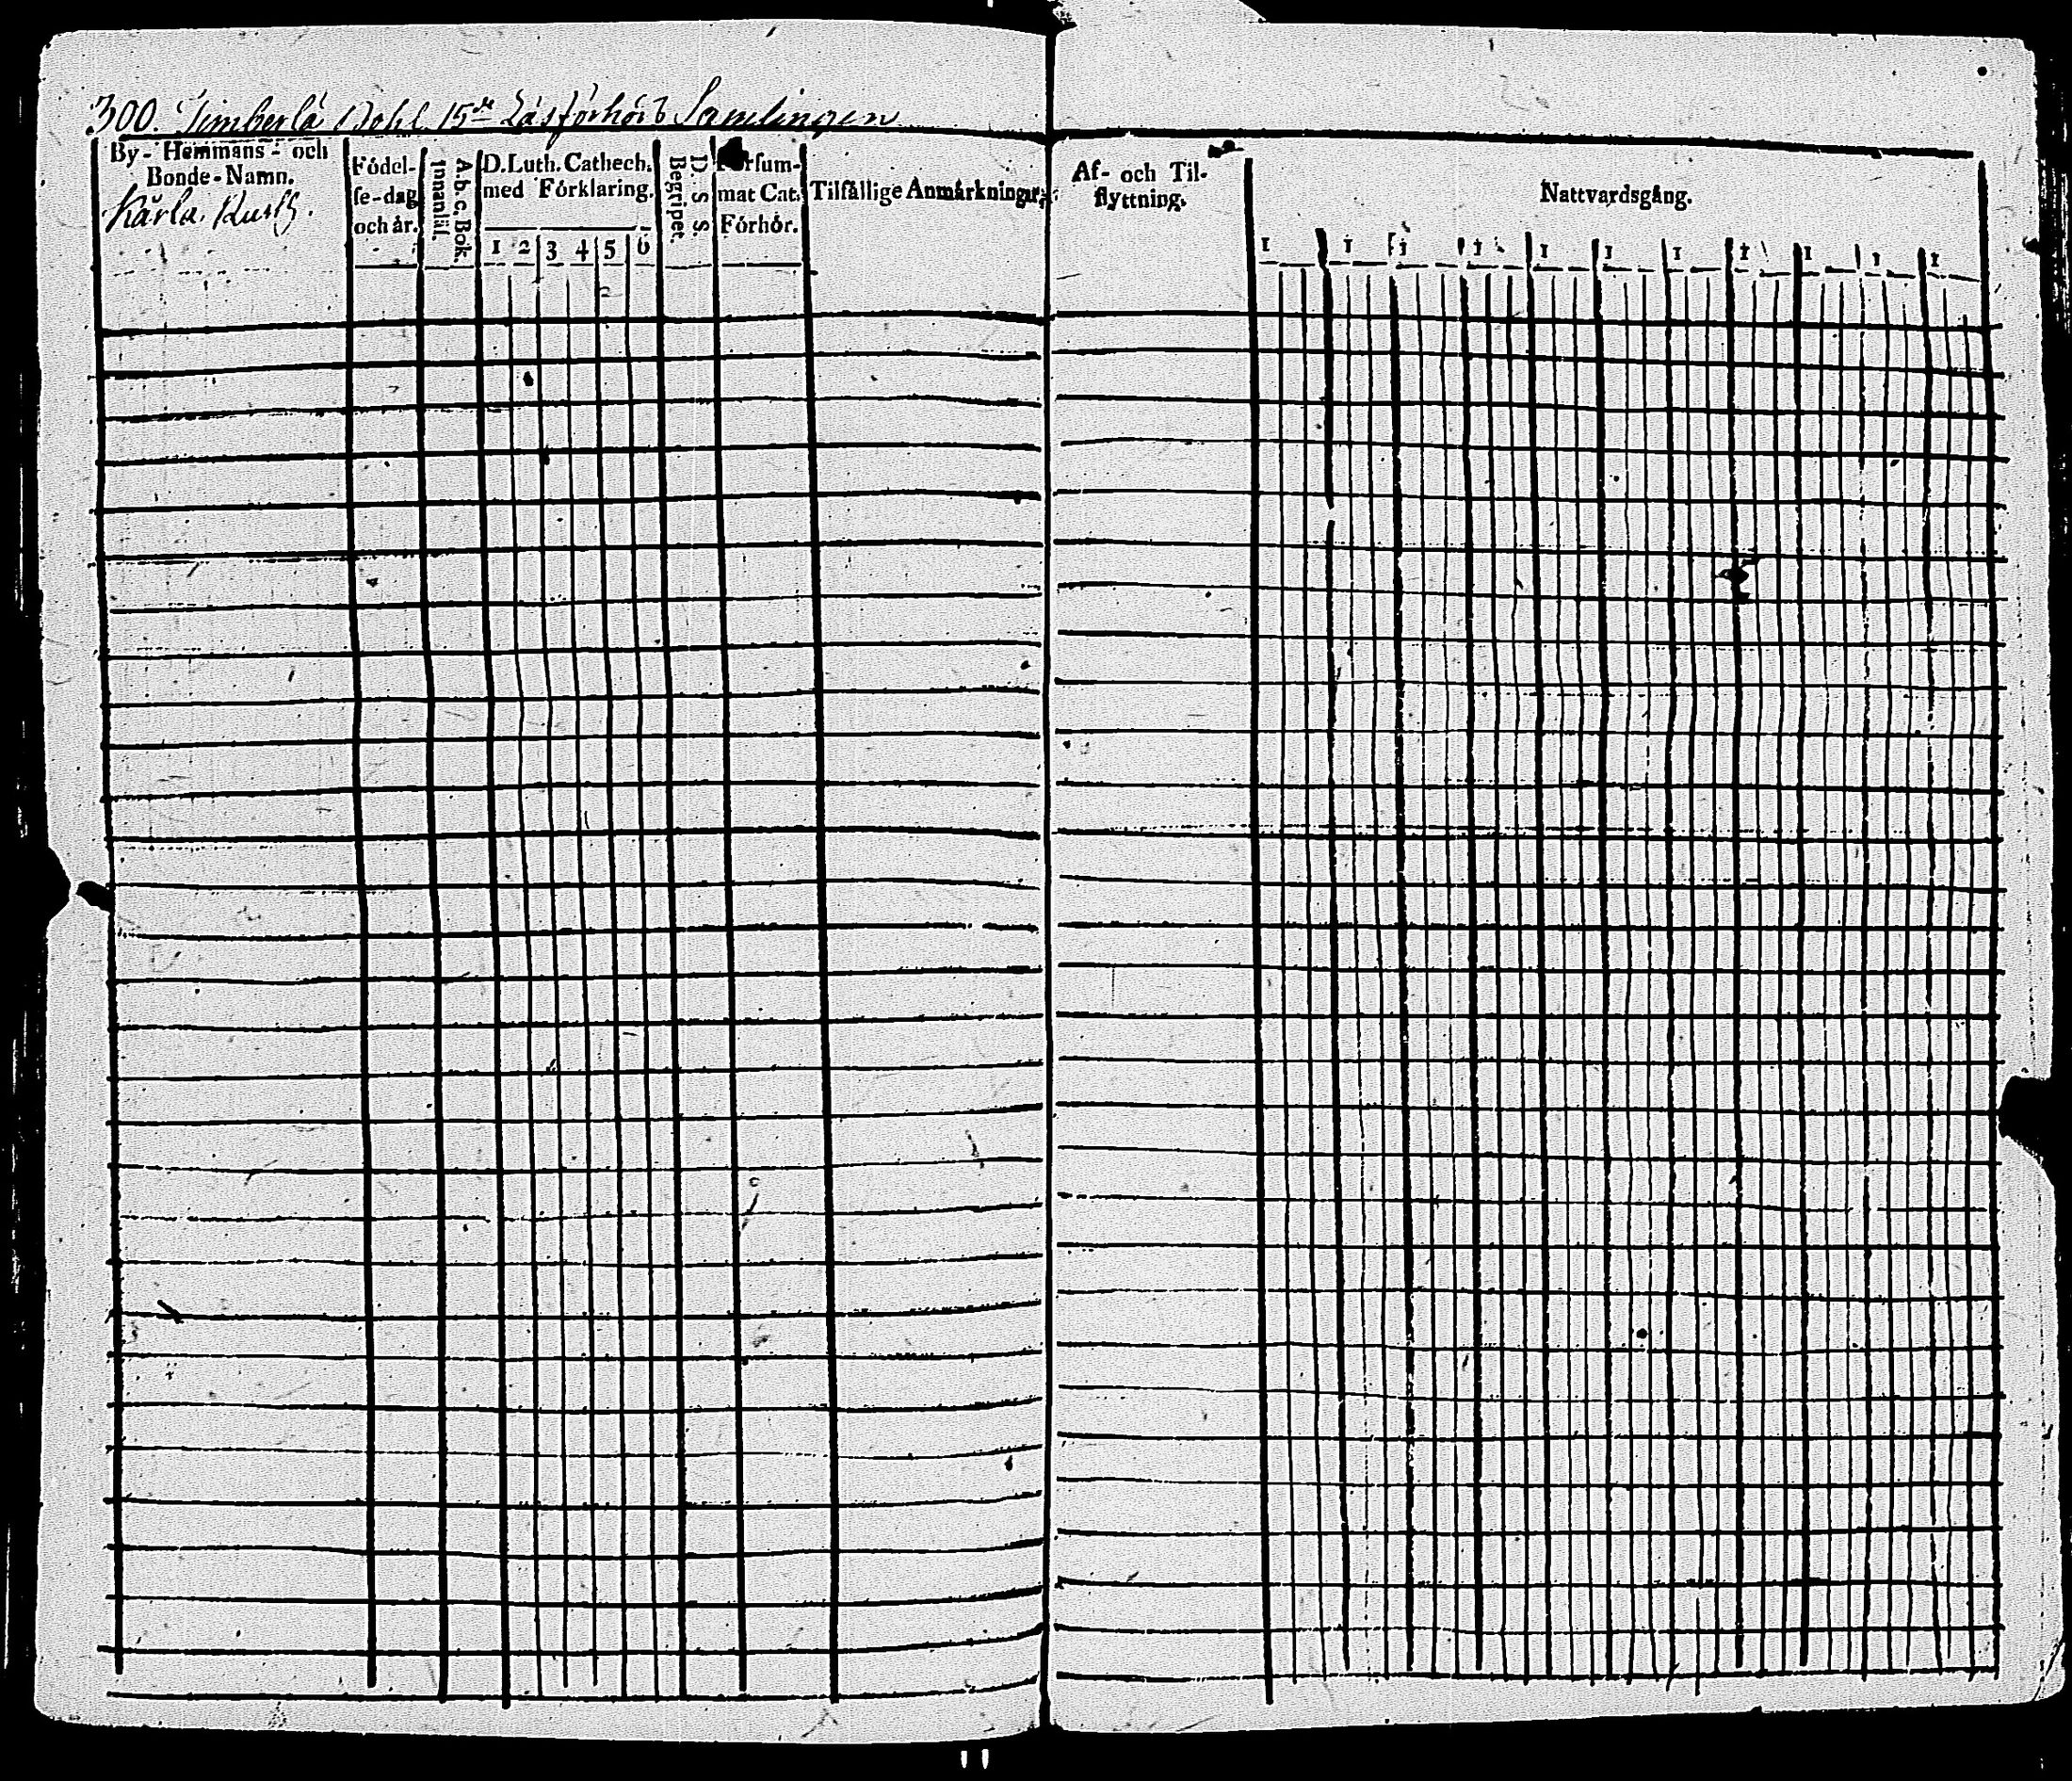 300. Timberlå Bohl 15de Läsförhörs Samlingen
By- Hemmans- och
Bonde-Namn.
Kårla Kusth.
Födel-
se-dag
och år.
A.b.c. Bok.
Innantill.
D. Luth. Cathech.
med Förklaring.
1 2 3 4 5 6
D. S. S.
Begripet.
Försum-
mat Cat.
Förhör.
Tilfällige Anmärkningar.
Af- och Til-
flyttning.
Nattvardsgång.
1 1 1 1 1 1 1 1 1 1 1